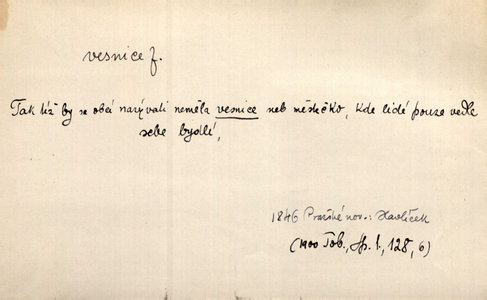 vesnice f.
Tak též by se obcí nazývati neměla vesnice neb městečko, kde lidé pouze vedle
sebe bydlí,
1846 Pražské nov.: Havlíček
(1900 Tob., Sp. 1, 128, 6)